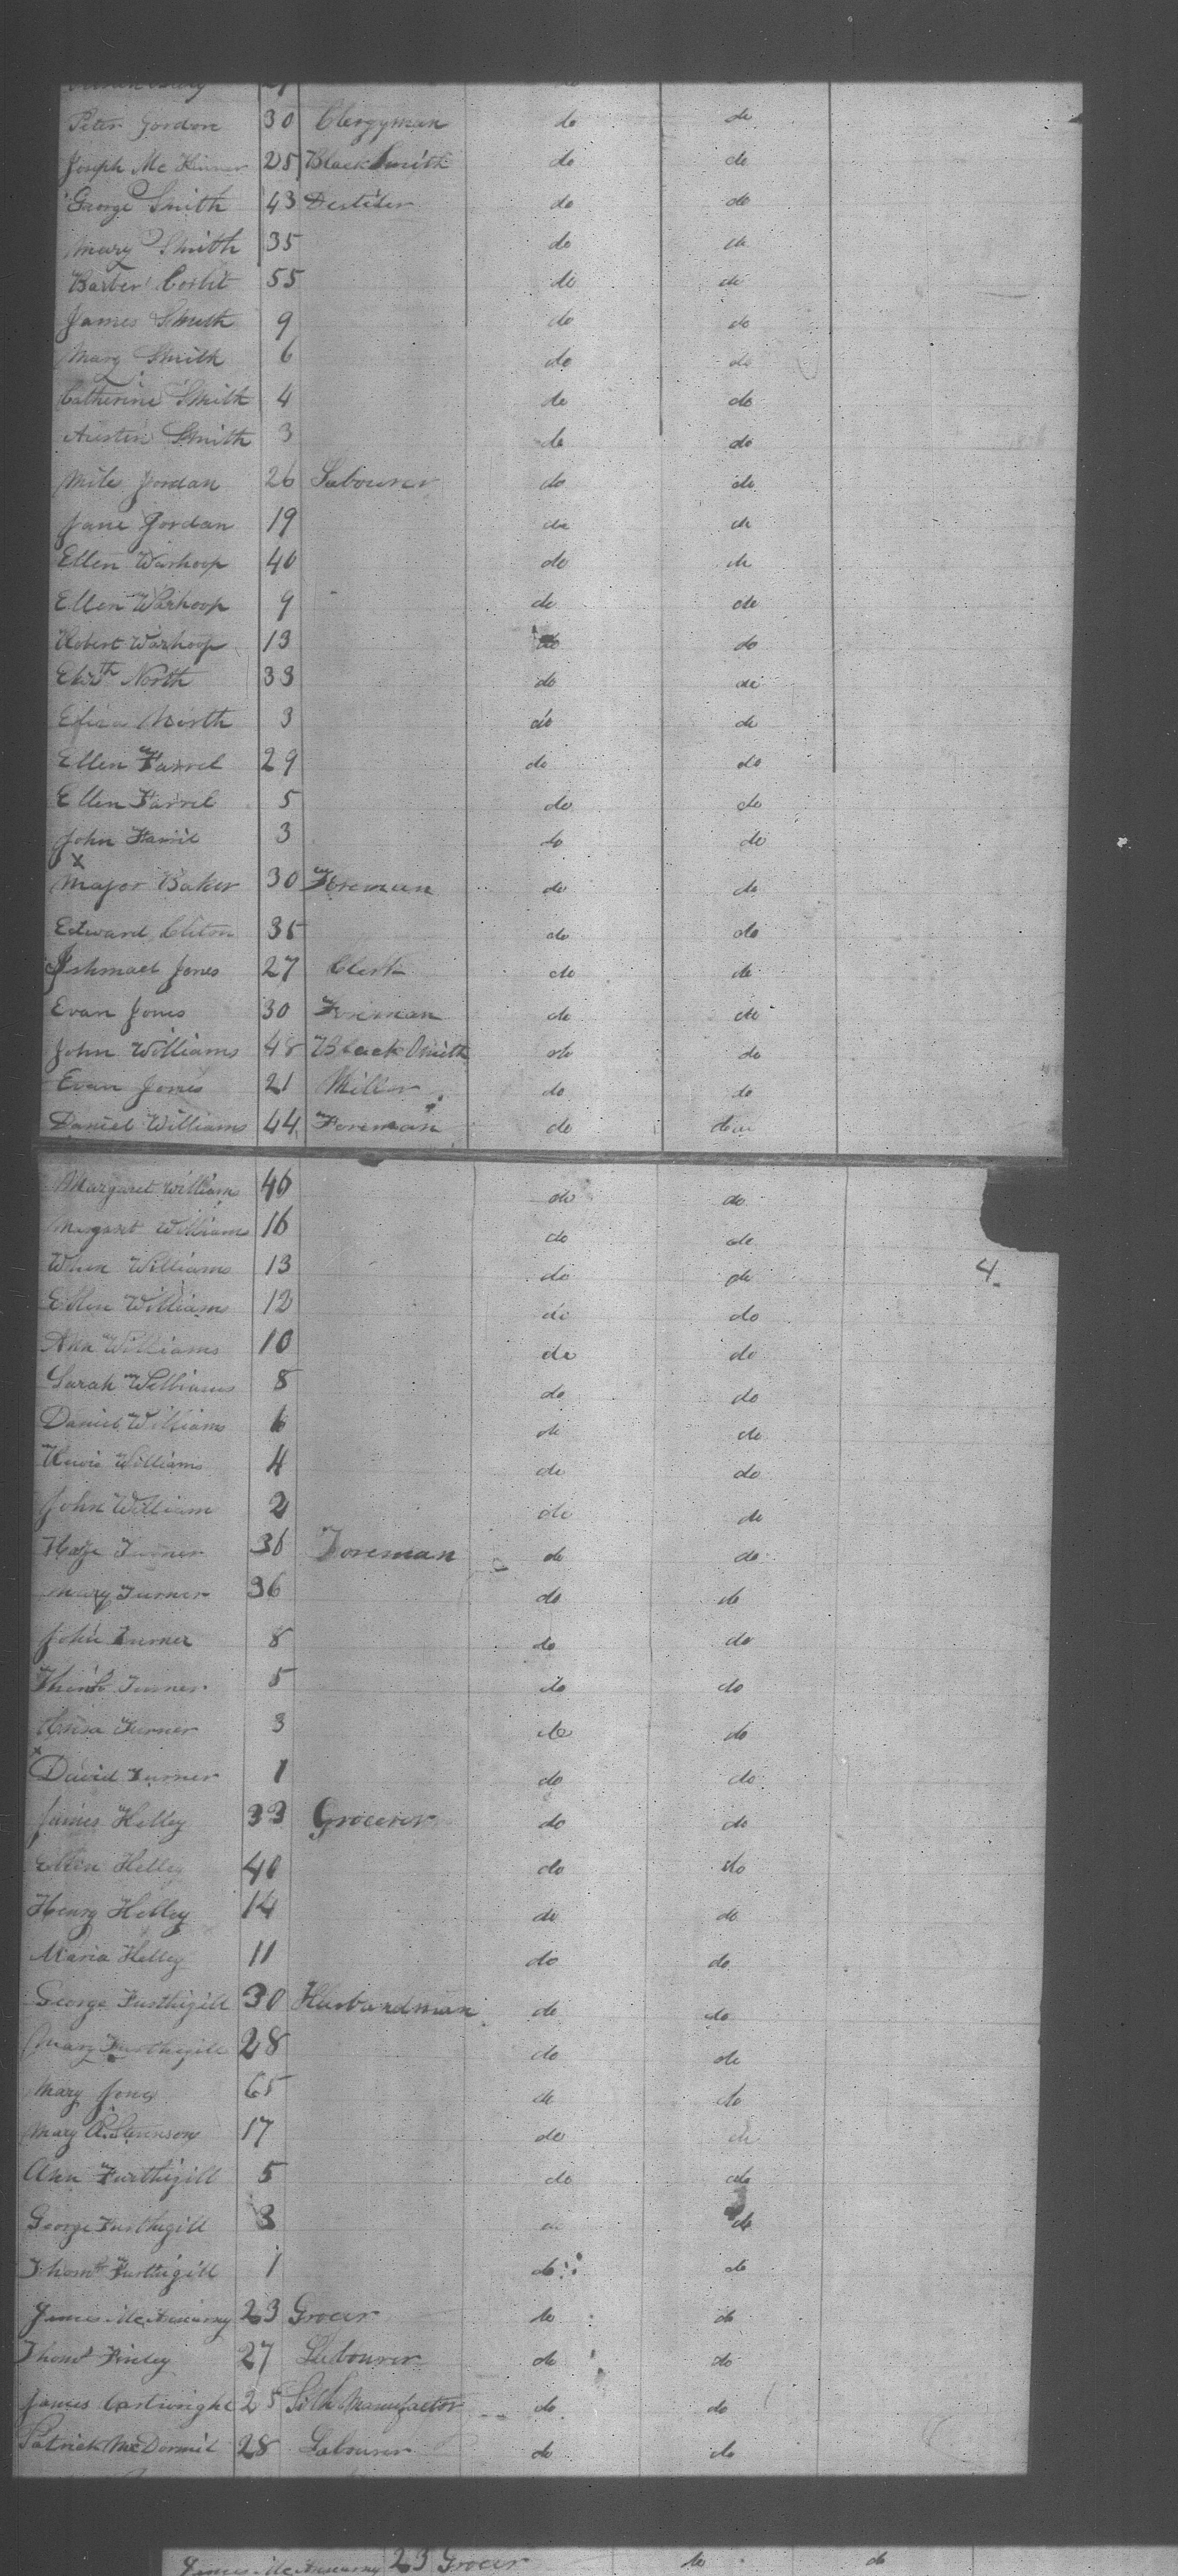 Peter Jordon 30 Clergyman do do
Joseph Mc 25 Black Smith do do
George Smith 43 Destiler do do
Mary Smith 35 do do
Barber Corlit 55 do do
James Smith 9 do do
Mary Smith 6 do do
Catherine Smith 4 do do
Austin Smith 3 do do
Mile Jordan 26 Labourer do do
Jane Jordan 19 do do
Ellen Warhoop 40 do do
Ellen Warhoop 9 do do
Robert Warhoop 13 do do
Elizth North 33 do do
North 3 do do
Ellen Farrel 29 do do
Ellen Farrel 5 do do
John Farril 3 do do
x
Major Baker 30 Foreman do do
Edward 35 do do
Ishmael Jones 27 Clerk do do
Evan Jones 30 Foreman do do
John Williams 48 Black Smith do do
Evan Jones 21 Miller do do
Daniel Williams 44 Foreman do do
Margaret William 46 do do
Margaret Williams 16 do do
Williams 13 do do 4
Ellen Williams 12 do do
Ann Williams 10 do do
Sarah Williams 8 do do
Daniel Williams 6 do do
Williams 4 do do
John William 2 do do
Turner 36 Foreman do do
Mary Turner 36 do do
John Turner 8 do do
Turner 5 do do
Turner 3 do do
x
David Turner 1 do do
James Helley 33 Grocerer do do
Ellen Helley 40 do do
Henry Helley 14 do do
Maria Helley 11 do do
George Furthigill 30 Husbandman do do
Mary Furthigill 28 do do
Mary Jones 65 do do
Mary A. Stevenson 17 do do
Ann Furthigill 5 do do
George Furthigill 3 do do
Thoms Furthigill 1 do do
James Mc 23 Grocer do do
Thoms Finley 27 Labourer do do
James Cartwright 25 Silk Manufactor do do
Patrick McDormit 28 Labourer do do
James Mc 23 Grocer do do